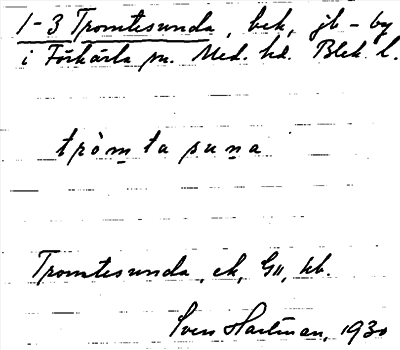 1-3 Tromtesunda, bek, jb - by
i Förkärla sn. Med. hd. Blek. l.
tròm ta suna
Tromtesunda, ek, GII, kb.
Sven Hartman, 1930